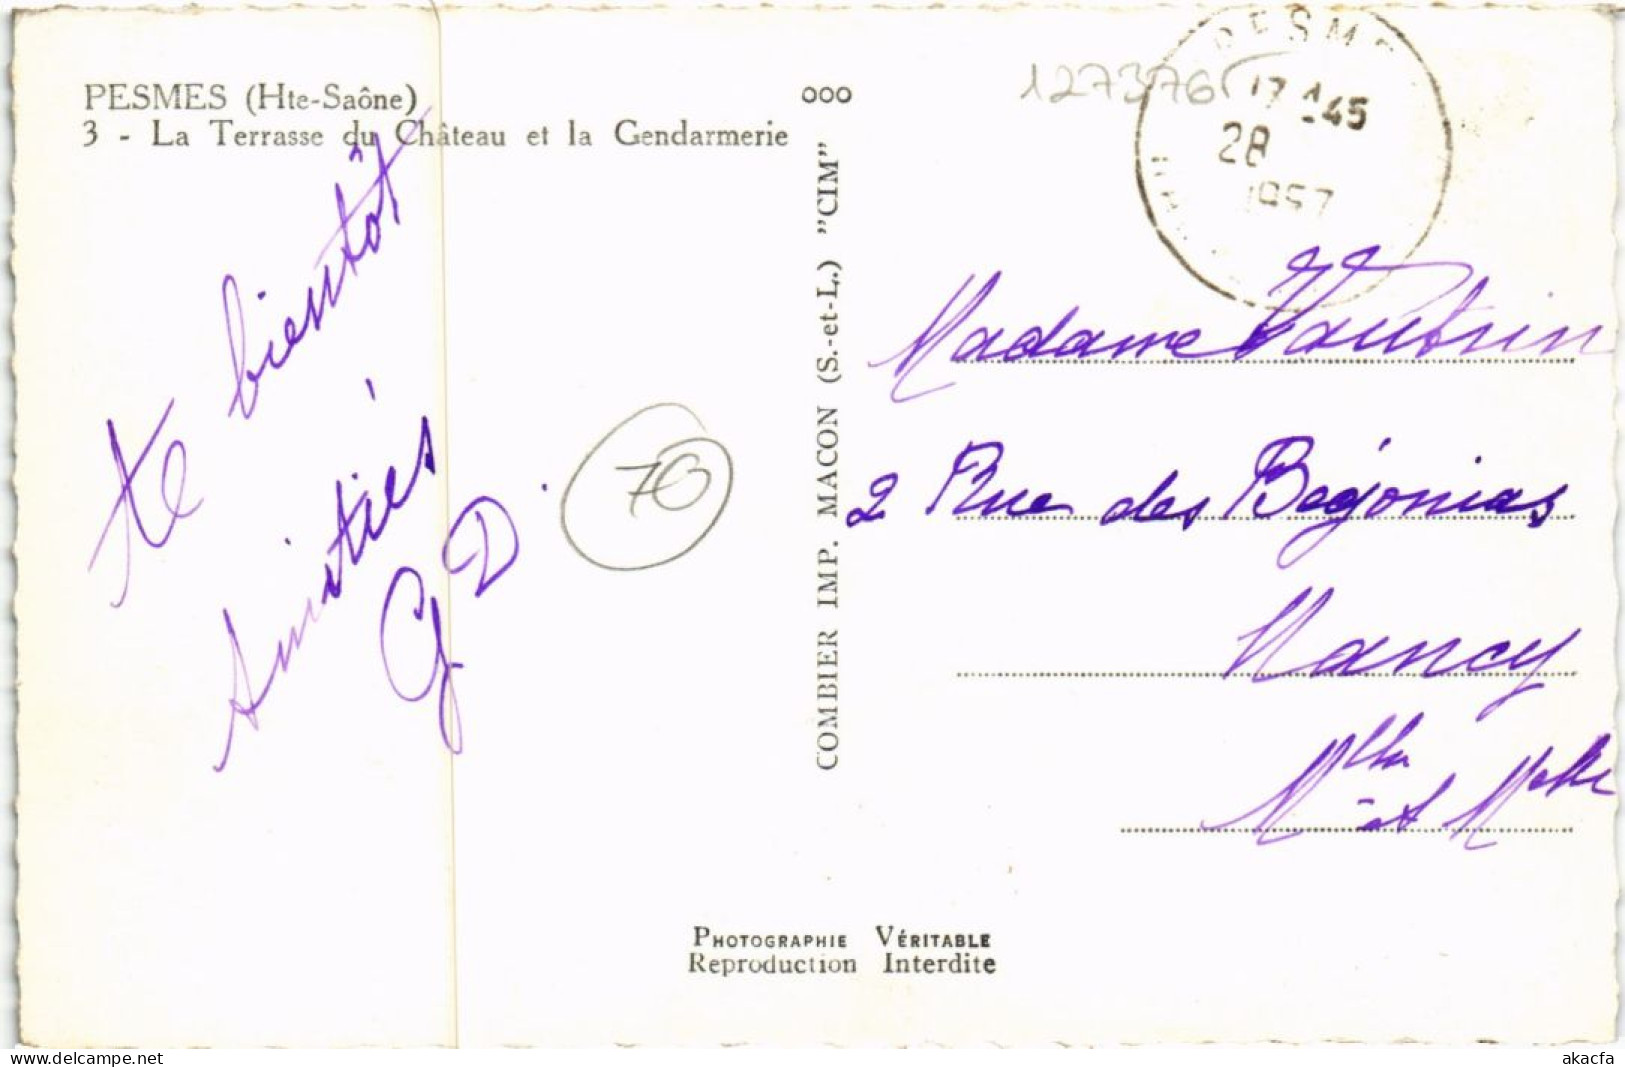 PESMES (Hte-Saône)
3 - La Terrasse du Château et la Gendarmerie
ooo
127376
PESMES
17 45
28
1957
te bientôt
Amitiés
G D.
70
COMBIER IMP. MACON (S.-et-L.) "CIM"
Madame Vautrin
2 Rue des Bégonias
Nancy
Mthe et Mselle
PHOTOGRAPHIE VÉRITABLE
Reproduction Interdite
www.delcampe.net
akacfa